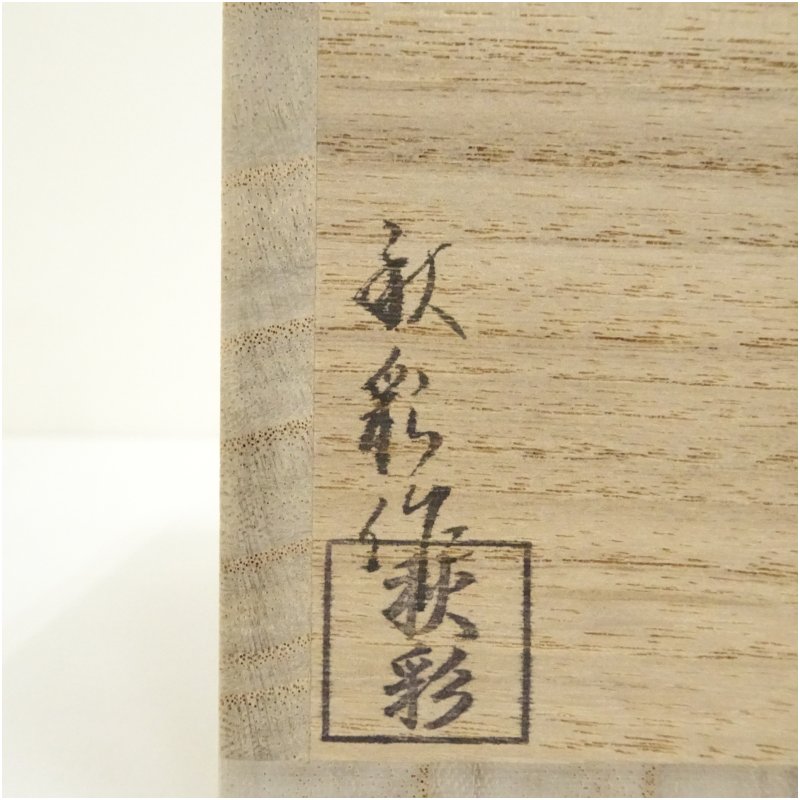 秋彩作
秋彩